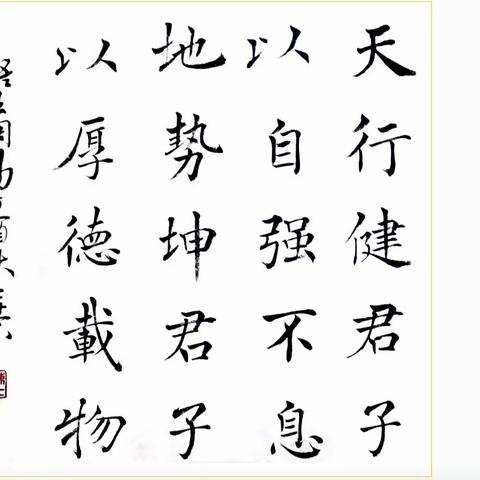 天行健君子
以自强不息
地势坤君子
以厚德載物